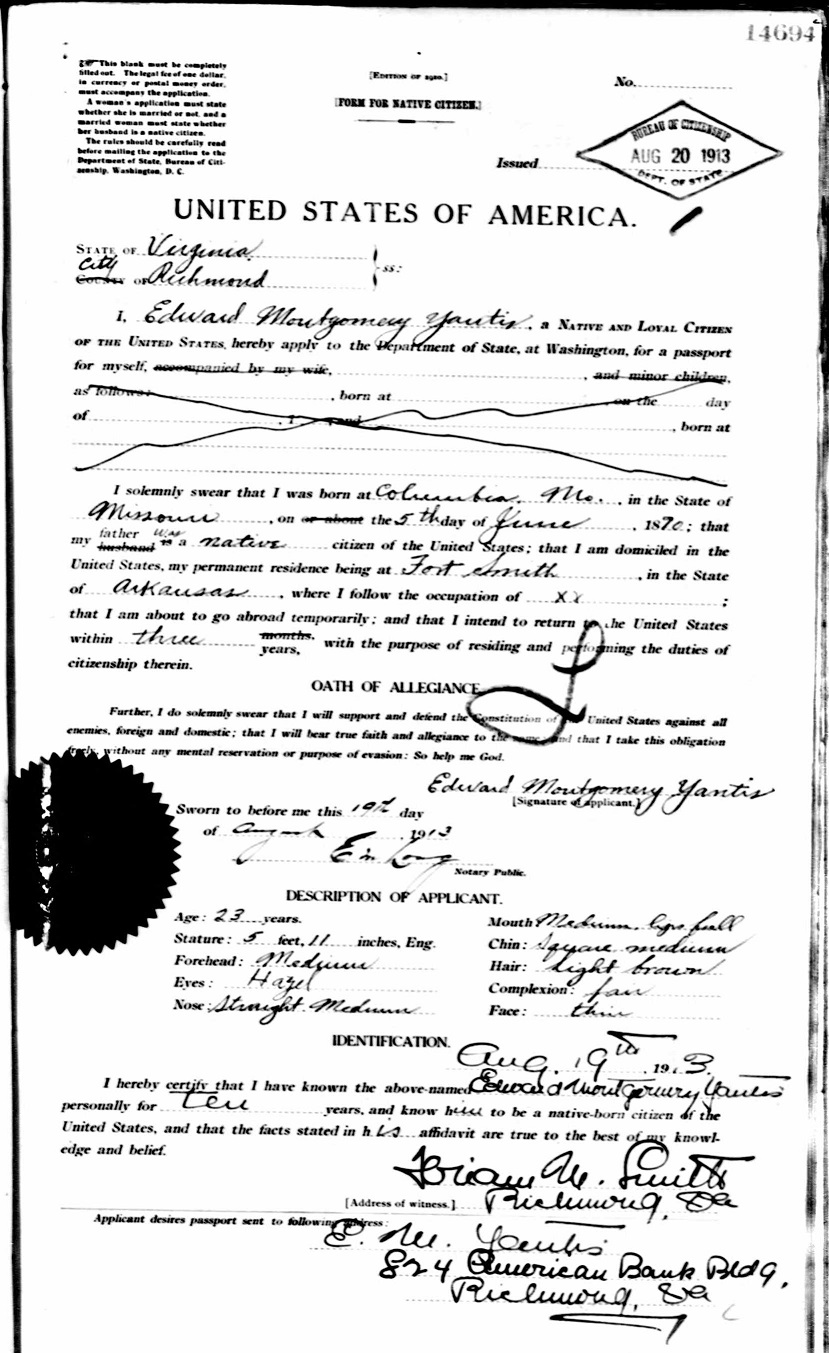 14694
☞ This blank must be completely
filled out. The legal fee of one dollar,
in currency or postal money order,
must accompany the application.
A woman's application must state
whether she is married or not, and a
married woman must state whether
her husband is a native citizen.
The rules should be carefully read
before mailing the application to the
Department of State, Bureau of Citi-
zenship, Washington, D. C.
[EDITION OF 1910.]
[FORM FOR NATIVE CITIZEN.]
No.
Issued
BUREAU OF CITIZENSHIP
AUG 20 1913
DEPT. OF STATE
UNITED STATES OF AMERICA.
STATE OF Virginia
City
COUNTY OF Richmond
ss:
I, Edward Montgomery Yantis, a NATIVE AND LOYAL CITIZEN
OF THE UNITED STATES, hereby apply to the Department of State, at Washington, for a passport
for myself, accompanied by my wife, , and minor children,
as follows: , born at on the day
of , 1 , and , born at
I solemnly swear that I was born at Columbia, Mo., in the State of
Missouri, on or about the 5th day of June, 1870; that
father was
my husband is a native citizen of the United States; that I am domiciled in the
United States, my permanent residence being at Fort Smith, in the State
of Arkansas, where I follow the occupation of XX ;
that I am about to go abroad temporarily; and that I intend to return to the United States
within three months. years, with the purpose of residing and performing the duties of
citizenship therein.
OATH OF ALLEGIANCE.
Further, I do solemnly swear that I will support and defend the Constitution of United States against all
enemies, foreign and domestic; that I will bear true faith and allegiance to the same; and that I take this obligation
freely, without any mental reservation or purpose of evasion: So help me God.
Edward Montgomery Yantis
[Signature of applicant.]
Sworn to before me this 19th day
of August, 1913
E M Long
Notary Public.
DESCRIPTION OF APPLICANT.
Age: 23 years.
Mouth: Medium, lips full
Stature: 5 feet, 11 inches, Eng.
Chin: Square medium
Forehead: Medium
Hair: Light brown
Eyes: Hazel
Complexion: fair
Nose: Straight Medium
Face: thin
IDENTIFICATION.
Aug. 19th 1913.
I hereby certify that I have known the above-named Edward Montgomery Yantis
personally for ten years, and know him to be a native-born citizen of the
United States, and that the facts stated in his affidavit are true to the best of my knowl-
edge and belief.
M. Smith
[Address of witness.] Richmond, Va
Applicant desires passport sent to following address:
E. M. Yantis
824 American Bank Bldg,
Richmond, Va